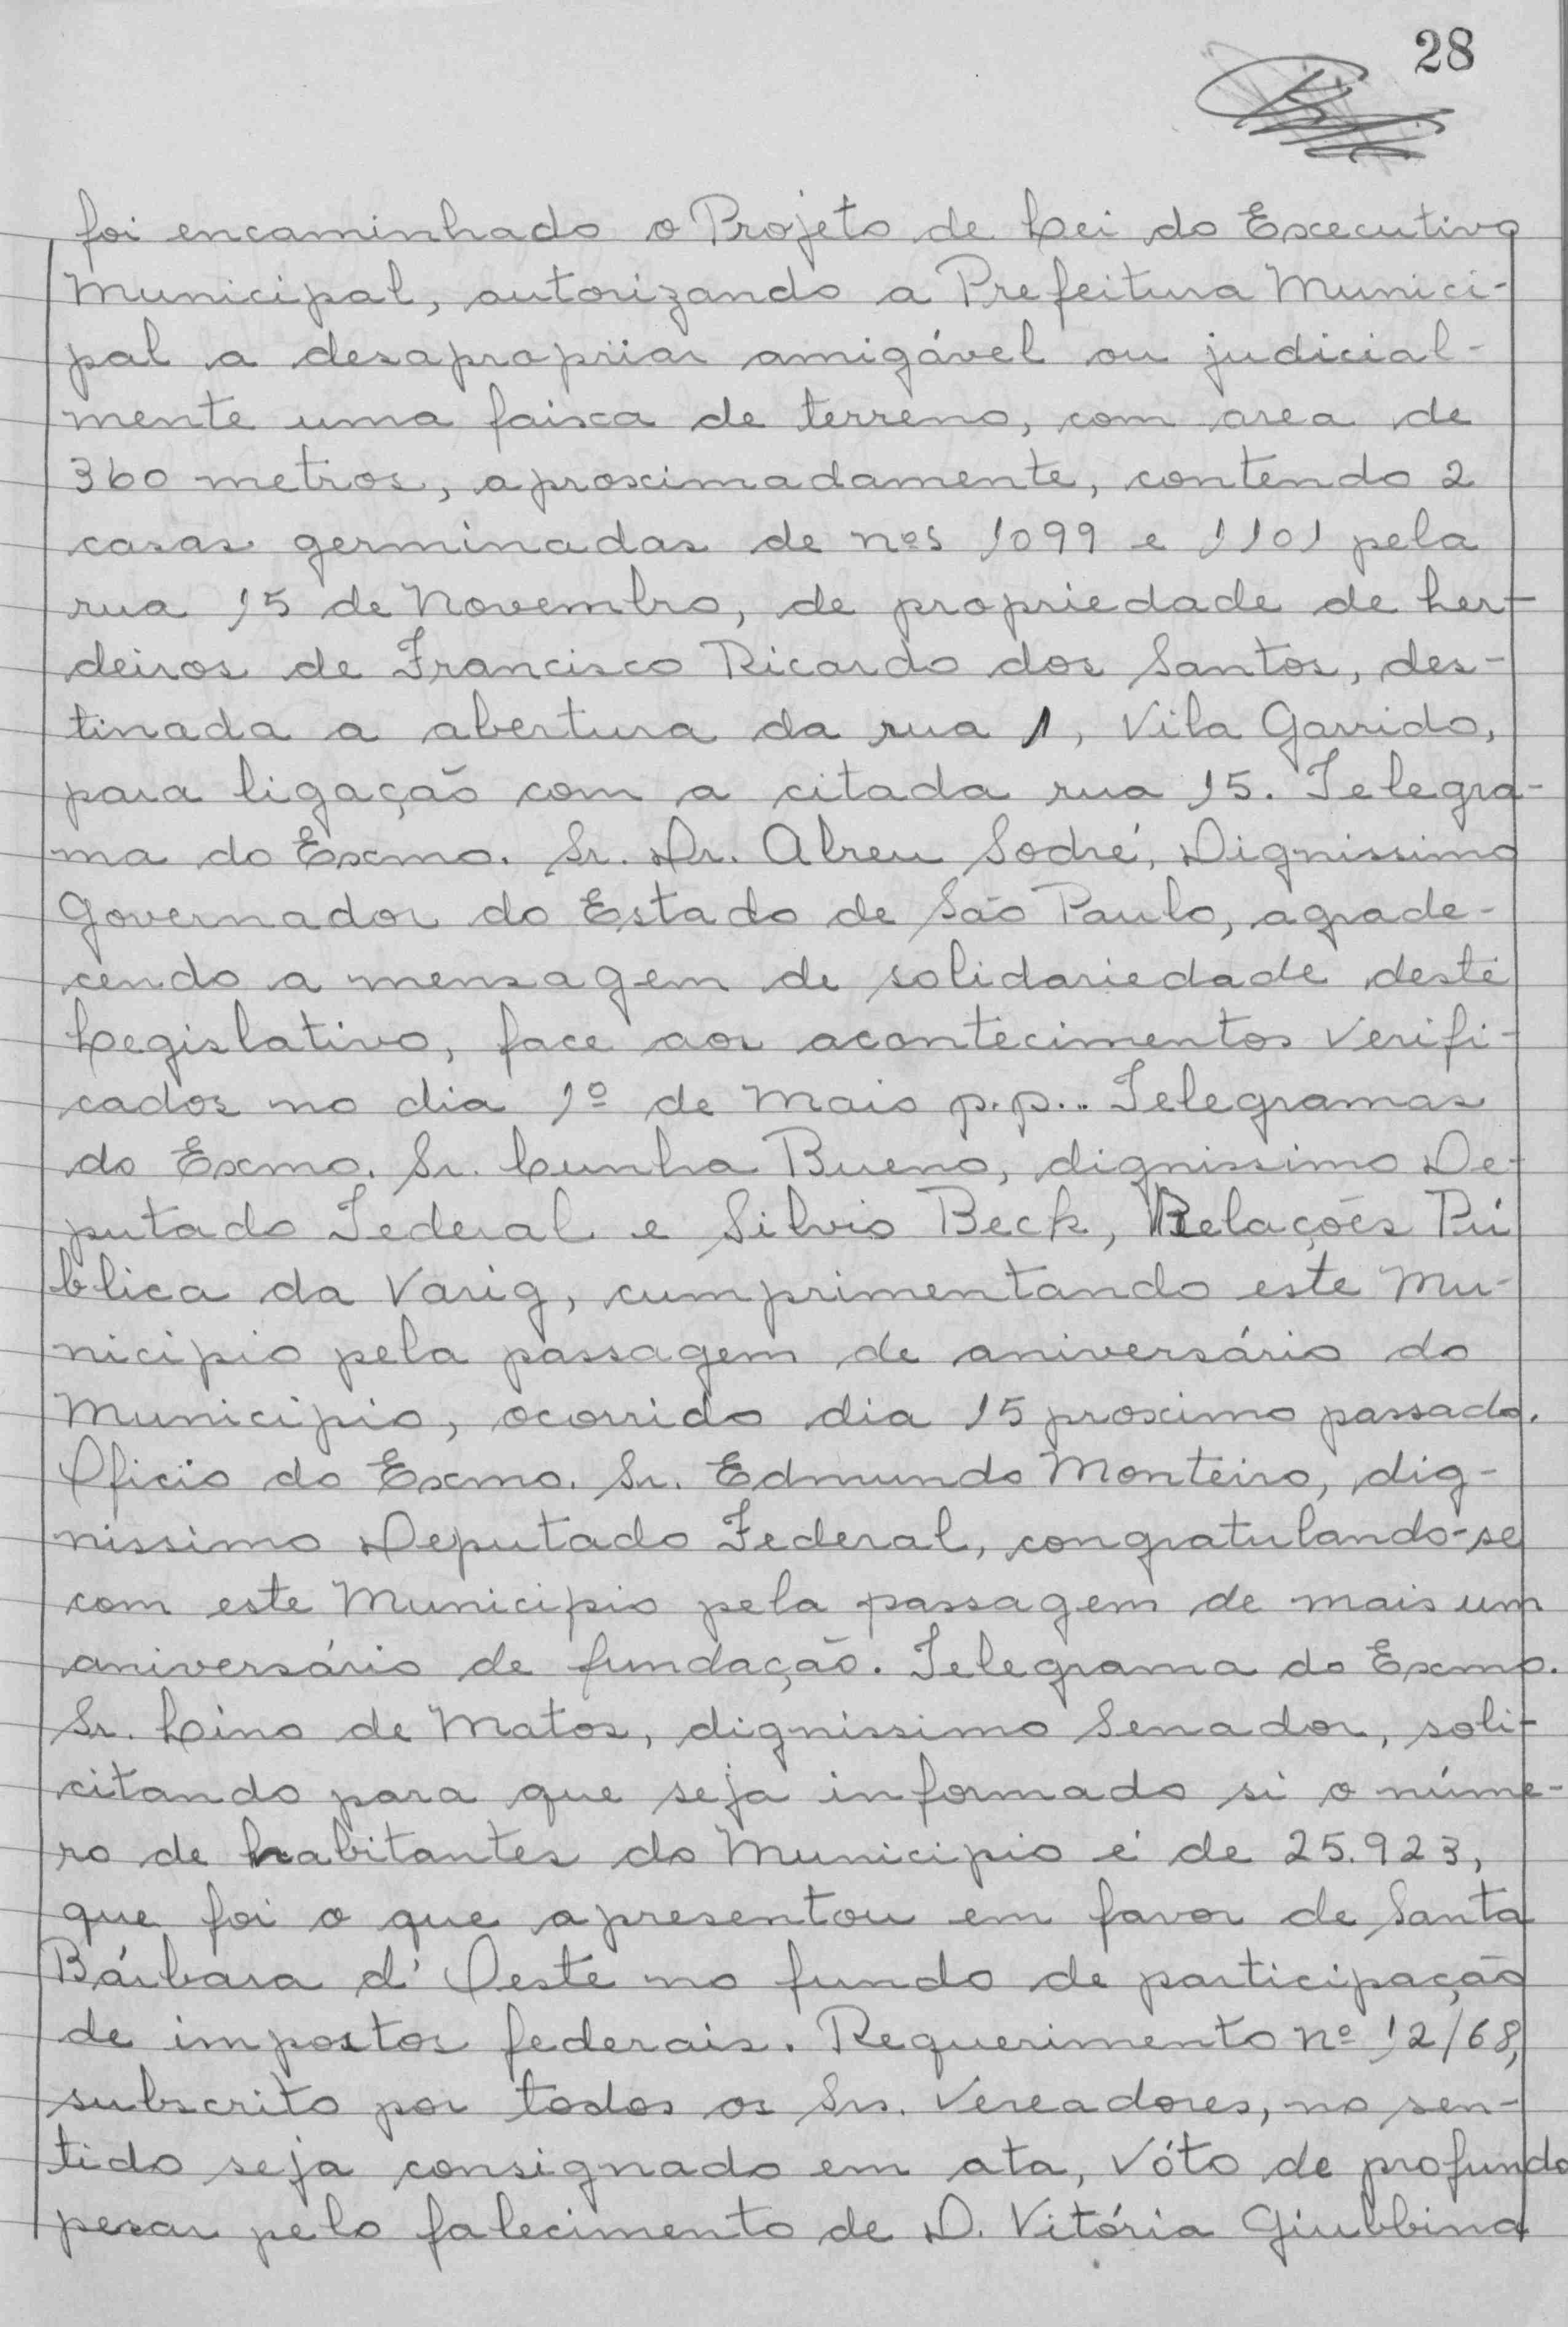 28
foi encaminhado o Projeto de Lei do Executivo
Municipal, autorizando a Prefeitura Munici-
pal a desapropriar amigável ou judicial-
mente uma faixa de terreno, com area de
360 metros, aproximadamente, contendo 2
casas germinadas de nºs 1099 e 1101 pela
rua 15 de Novembro, de propriedade de her-
deiros de Francisco Ricardo dos Santos, des-
tinada a abertura da rua 1, Vila Garrido,
para ligação com a citada rua 15. Telegra-
ma do Exmo. Sr. Dr. Abreu Sodré, Dignissimo
Governador do Estado de São Paulo, agrade-
cendo a mensagem de solidariedade deste
Legislativo, face aos acontecimentos verifi-
cados no dia 1º de Maio p.p.. Telegramas
do Exmo. Sr. Cunha Bueno, dignissimo De-
putado Federal e Silvio Beck, Relações Pú
blica da Varig, cumprimentando este Mu-
nicipio pela passagem de aniversário do
Municipio, ocorrido dia 15 proximo passado.
Oficio do Exmo. Sr. Edmundo Monteiro, dig-
nissimo Deputado Federal, congratulando-se
com este Municipio pela passagem de mais um
aniversário de fundação. Telegrama do Exmo.
Sr. Lino de Matos, dignissimo Senador, soli-
citando para que seja informado si o núme-
ro de habitantes do Municipio é de 25.923,
que foi o que apresentou em favor de Santa
Bárbara d'Oeste no fundo de participação
de impostos federais. Requerimento nº 12/68,
subscrito por todos os Srs. Vereadores, no sen-
tido seja consignado em ata, vóto de profundo
pesar pelo falecimento de D. Vitória Giubbina